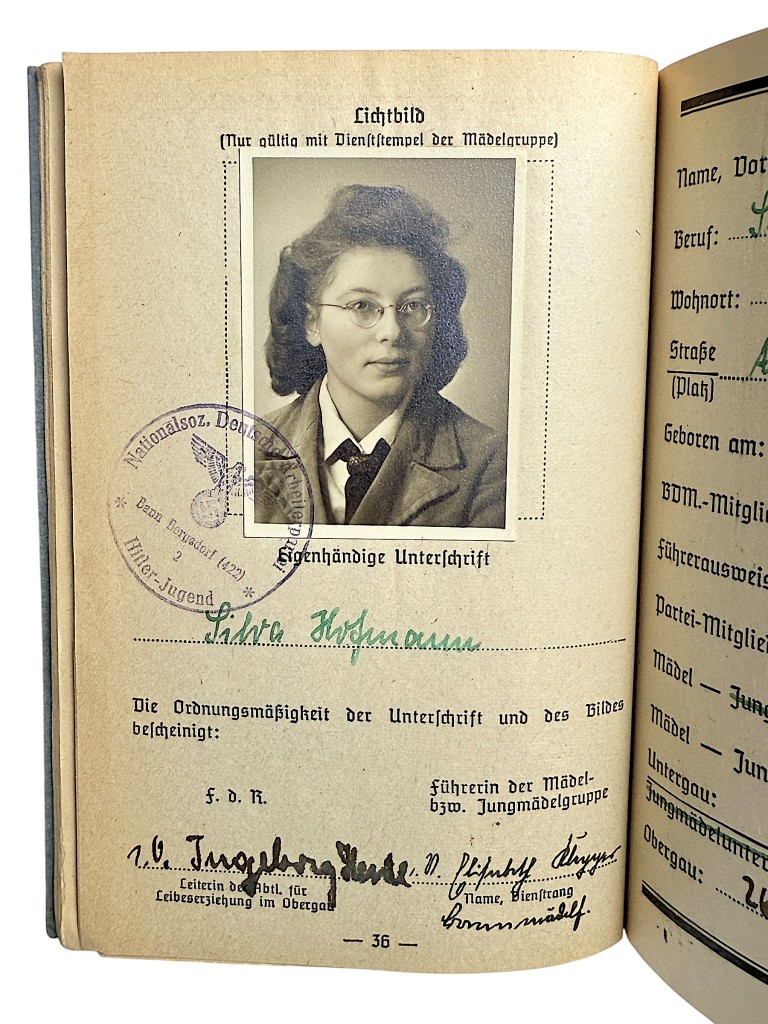 Lichtbild
(Nur gültig mit Dienststempel der Mädelgruppe)
Nationalsoz. Deutsche Arbeiterpartei
Bann Bergsdorf (422)
2
* Hitler-Jugend *
Eigenhändige Unterschrift
Silva Hofmann
Die Ordnungsmäßigkeit der Unterschrift und des Bildes
bescheinigt:
F. d. R.
Führerin der Mädel-
bzw. Jungmädelgruppe
Ingeborg
Elisabeth
Leiterin der Abtl. für
Leibeserziehung im Obergau
Name, Dienstrang
— 36 —
Name, Vor
Beruf:
Wohnort:
Straße
(Platz)
Geboren am:
BDM.-Mitglie
Führerausweis
Partei-Mitglied
Mädel — Jung
Mädel — Jun
Untergau:
Jungmädelunter
Obergau: